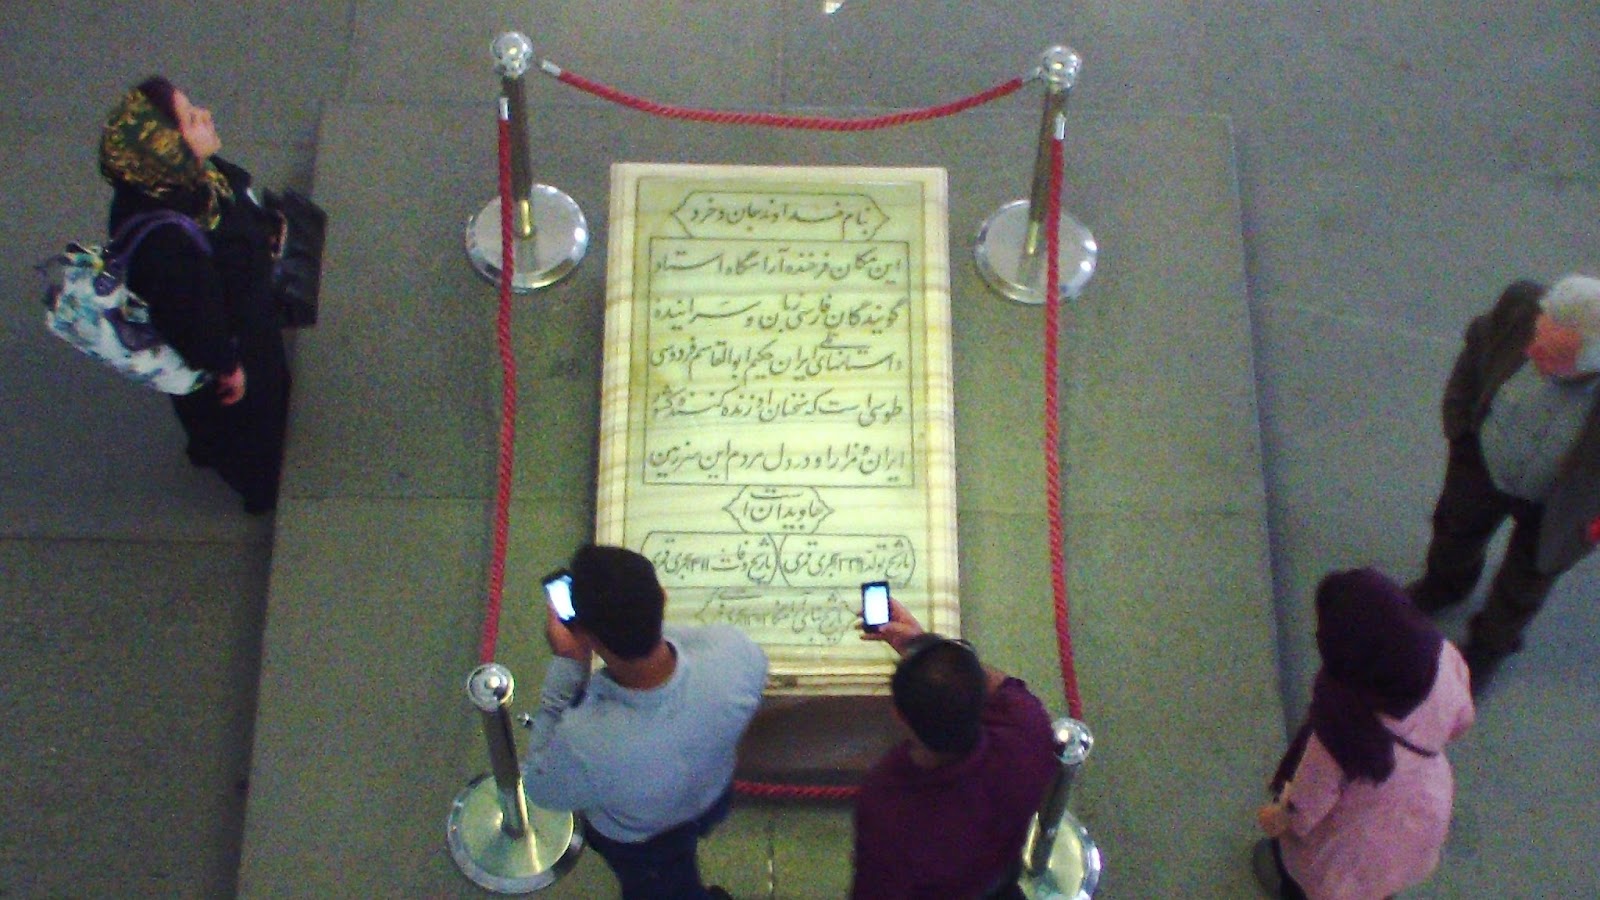 بنام خداوند جان و خرد
این مکان فرخنده آرامگاه استاد
گویندگان فارسی زبان و سراینده
داستانهای ملی ایران حکیم ابوالقاسم فردوسی
طوسی است که سخنان او زنده کننده کشور
ایران و مزار او در دل مردم این سرزمین
جاویدان است
تاریخ تولد ۳۲۹ هجری قمری
تاریخ وفات ۴۱۱ هجری قمری
تاریخ بنای آرامگاه